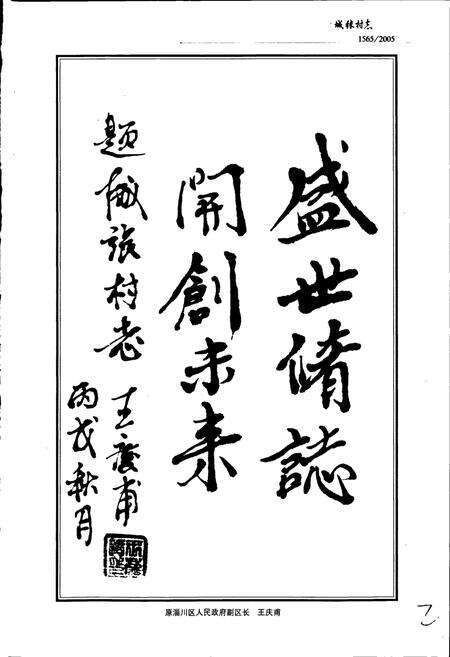 城张村志
1565/2005
盛世脩誌
開創未来
题城张村志
王慶甫
丙戌秋月
原淄川区人民政府副区长 王庆甫